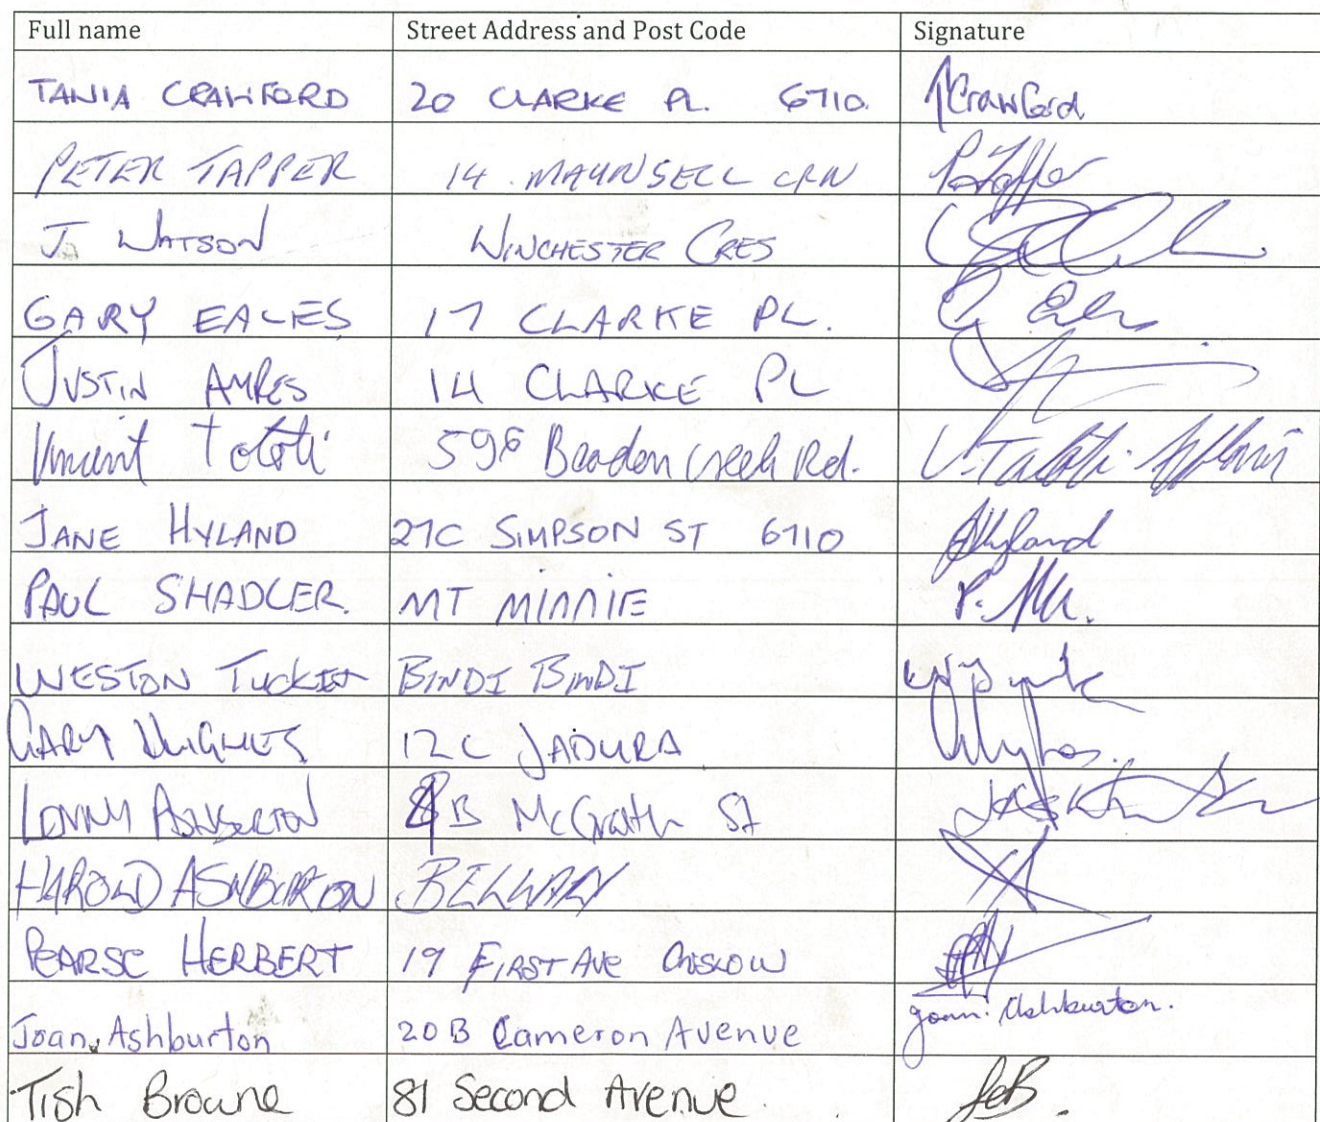 Full name Street Address and Post Code Signature
TANIA CRAWFORD 20 CLARKE PL. 6710. TCrawford
PETER TAPPER 14 MAUNSELL CRN P Tapper
J. WATSON WINCHESTER CRES
GARY EALES 17 CLARKE PL. G Eales
JUSTIN AYRES 14 CLARKE PL
Vincent Totoli Beadon Creek Rd.
JANE HYLAND 27C SIMPSON ST 6710 JHyland
PAUL SHADLER. MT MINNIE P.
WESTON TUCKER BINDI BINDI
GARY HUGHES 12C JADURA
LENNY ASHBURTON B McGrath St
HAROLD ASHBURTON
PEARSE HERBERT 19 FIRST AVE ONSLOW
Joan, Ashburton 20B Cameron Avenue Joan. Ashburton.
Tish Browne 81 Second Avenue.